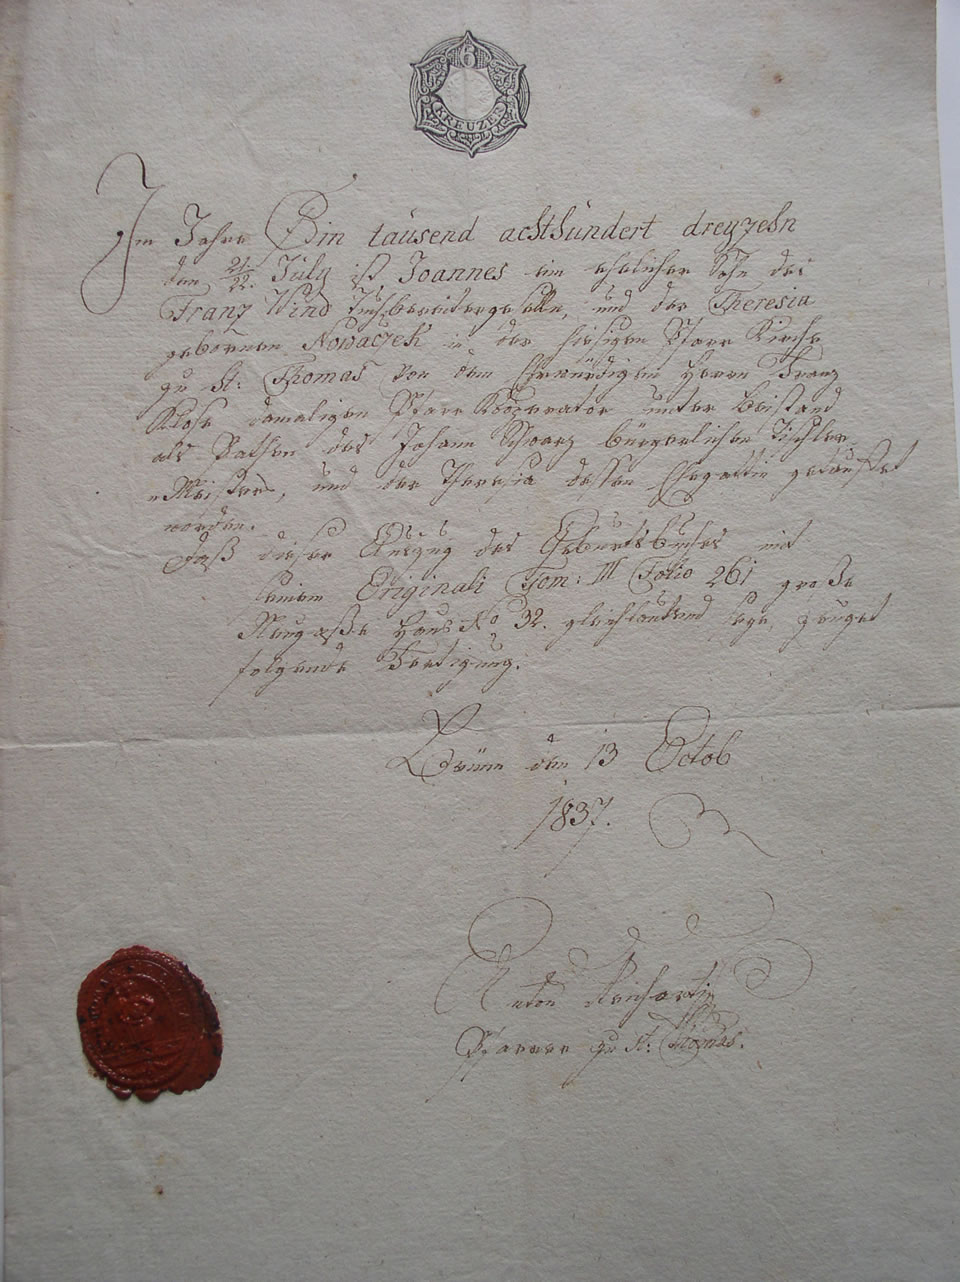 6
KREUZER
Im Jahre Ein tausend achthundert dreyzehn
den 21/22. July ist Joannes ein ehelicher Sohn des
Franz Wind Tuchbereitergeselle, und der Theresia
gebornen Nowaczek in der hiesigen Pfarr Kirche
zu St: Thomas von dem Ehrwürdigen Herrn Franz
Klose damaligen Pfarr Kooperator unter Beistand
als Pathen des Johann Schwarz bürgerlicher Tischler
Meister, und der Theresia dessen Ehegattin getauffet
worden.
Daß dieser Auszug des Geburtsbuches mit
seinem Originali Tom: III Folio 261 große
Neugaße Haus No 32. gleichlautend seye, zeuget
folgende Fertigung.
Brünn den 13 Octob
1837.
Anton
Pfarrer zu St: Thomas.